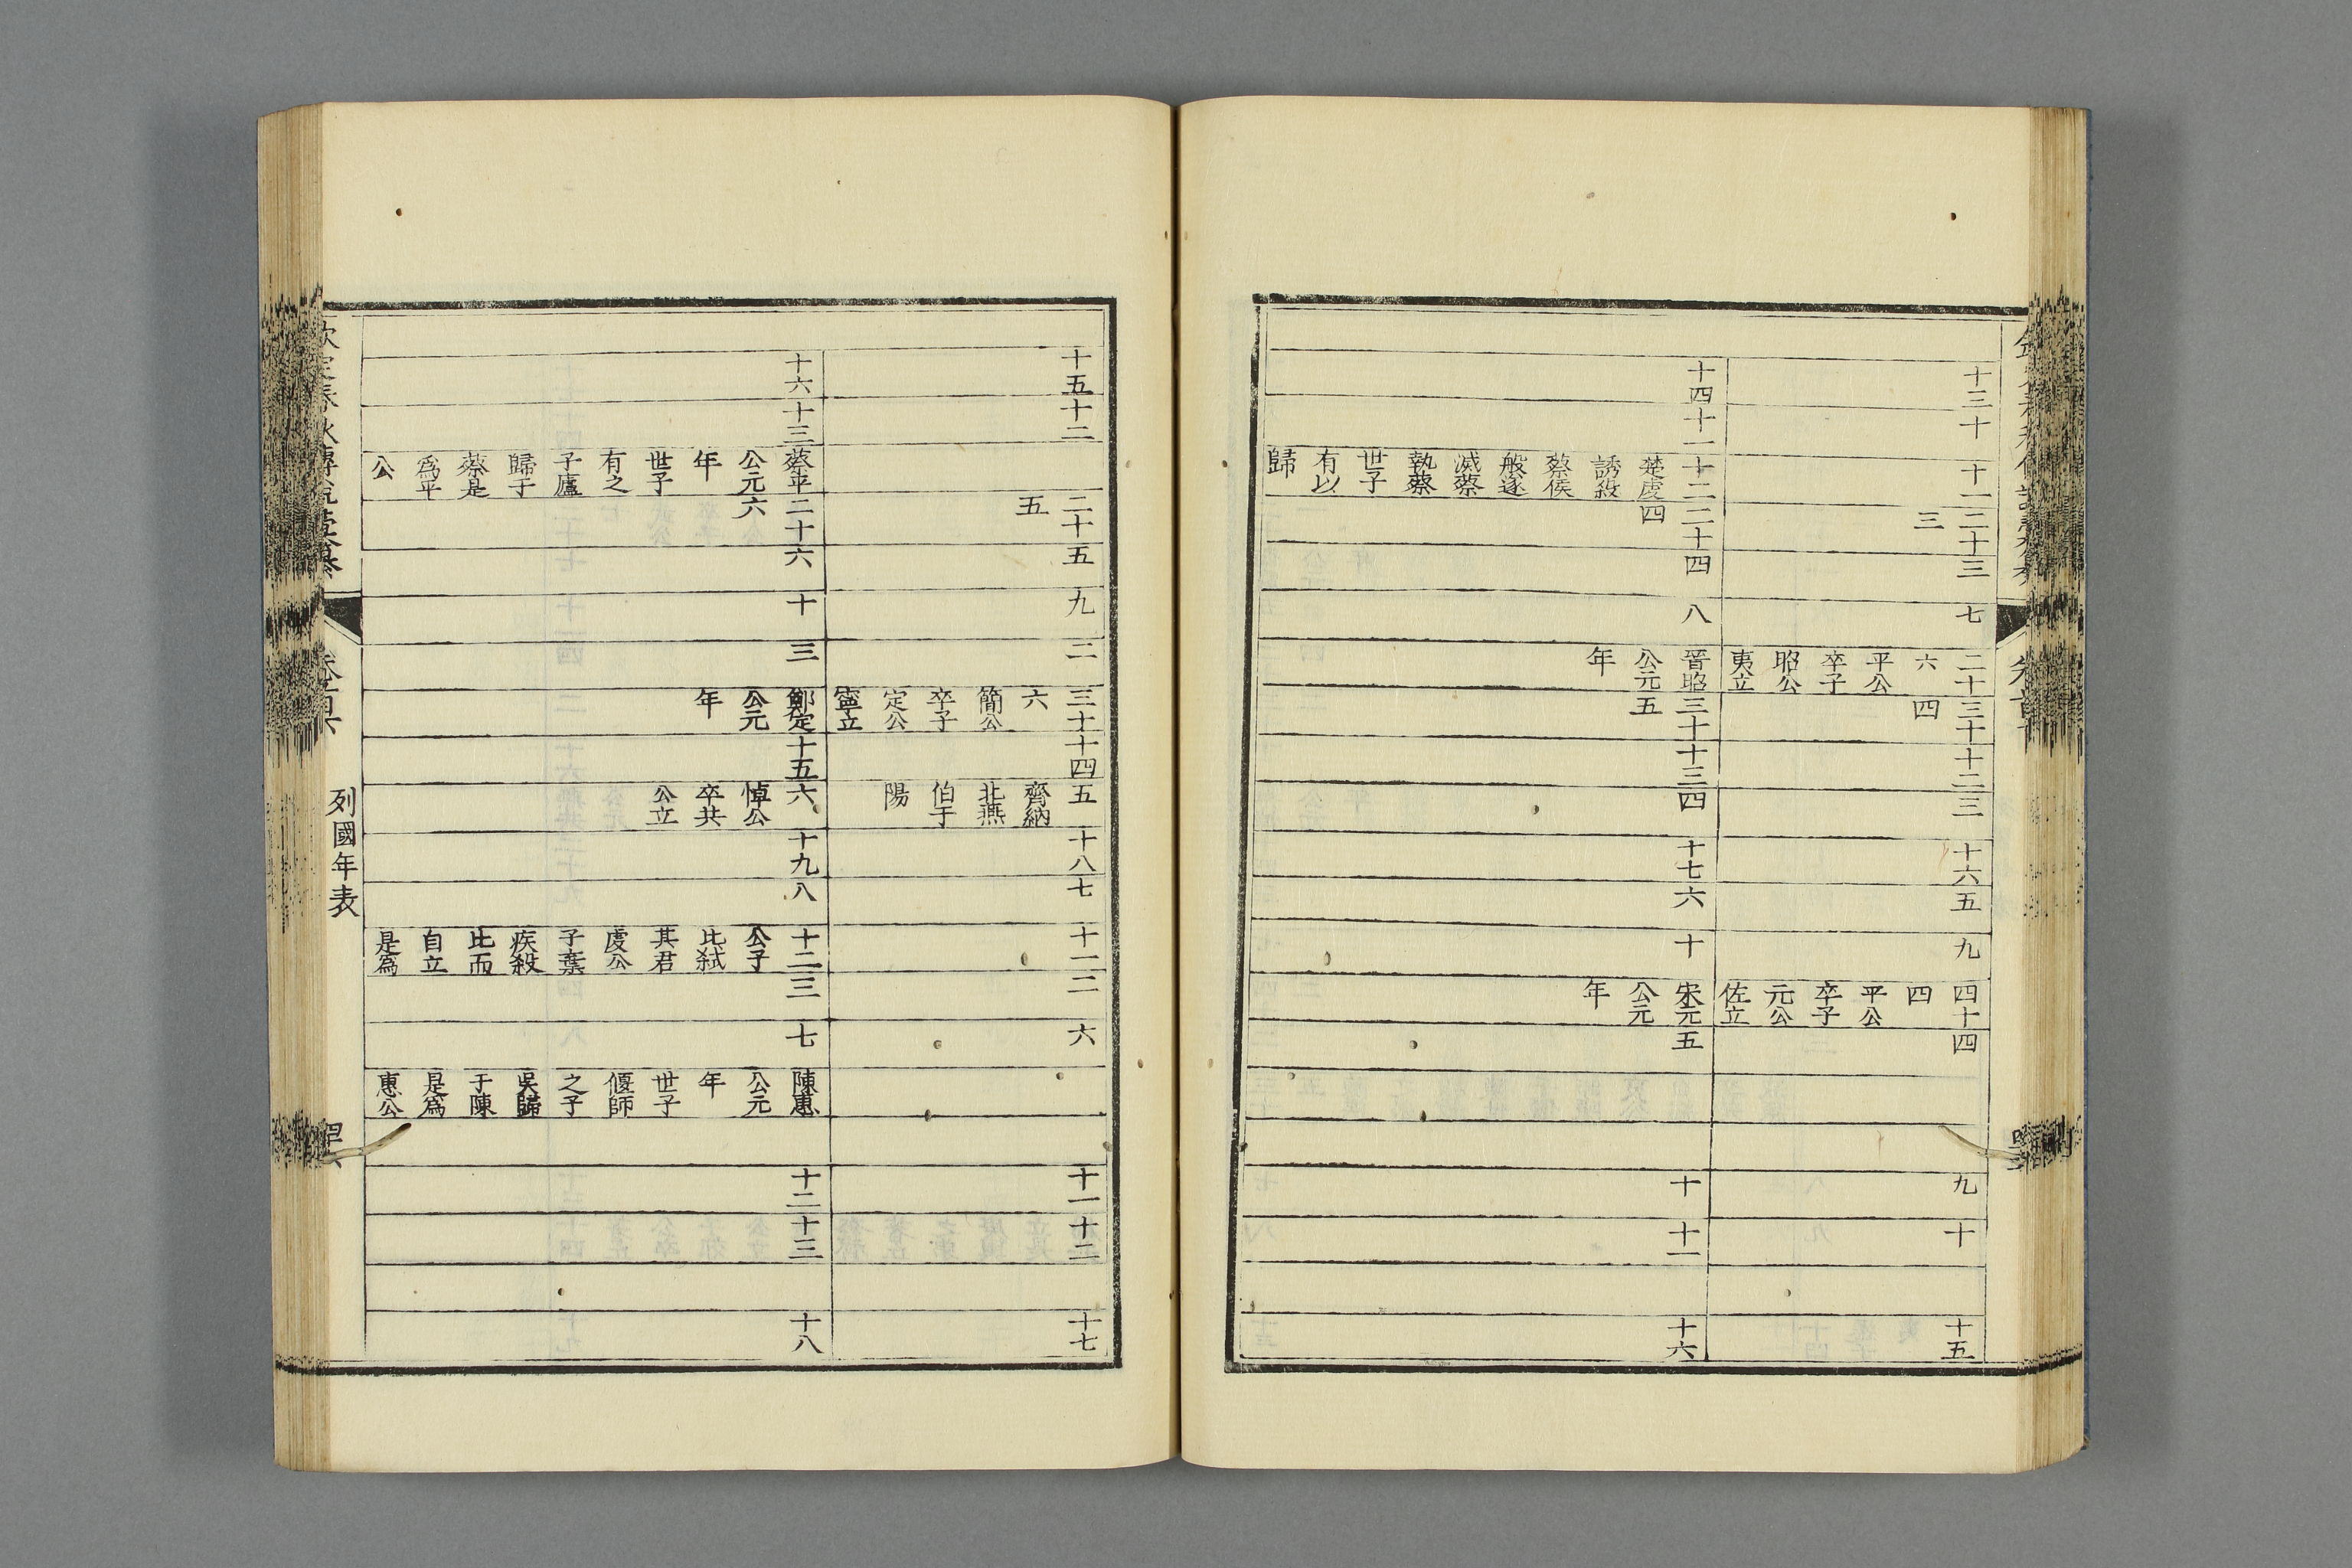 十三
十
十一
二十
三
三
七
二十
六
平公
卒子
昭公
夷立
三十
四
十二
三
十六
五
九
四十
四
平公
卒子
元公
佐立
四
九
十
十五
十四
十一
十二
楚虔
誘殺
蔡侯
般遂
滅蔡
執蔡
世子
有以
歸
二十
四
四
八
晉昭
公元
年
三十
五
十三
四
十七
六
十
宋元
公元
年
五
十
十一
十六
十五
十二
二十
五
五
九
二
三十
六
簡公
卒子
定公
寧立
十四
五
齊納
北燕
伯于
陽
十八
七
十一
二
六
十一
十二
十七
十六
十三
蔡平
公元
年
世子
有之
子廬
歸于
蔡是
爲平
公
二十
六
六
十
三
鄭定
公元
年
十五
六
悼公
卒共
公立
十九
八
十二
公子
比弑
其君
虔公
子棄
疾殺
比而
自立
是爲
三
七
陳惠
公元
年
世子
偃師
之子
吳歸
于陳
是爲
惠公
十二
十三
十八
列國年表